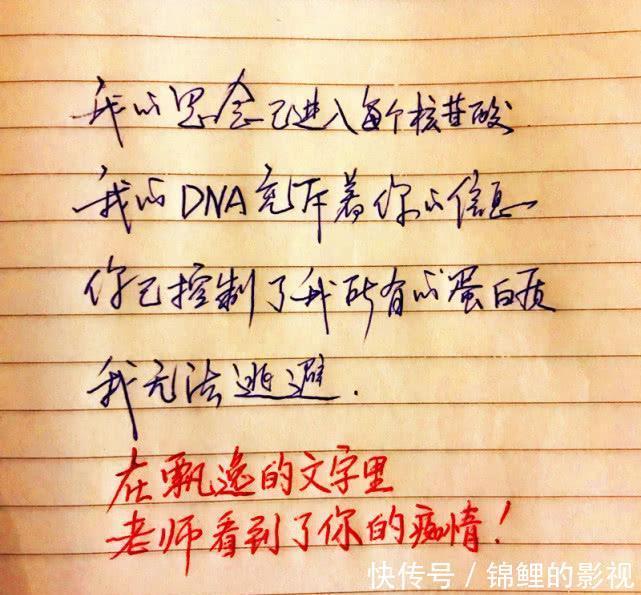 我的思念已进入每个核苷酸
我的DNA充斥着你的信息
你已控制了我所有的蛋白质
我无法逃避.
在飘逸的文字里
老师看到了你的痴情!
快传号 / 锦鲤的影视